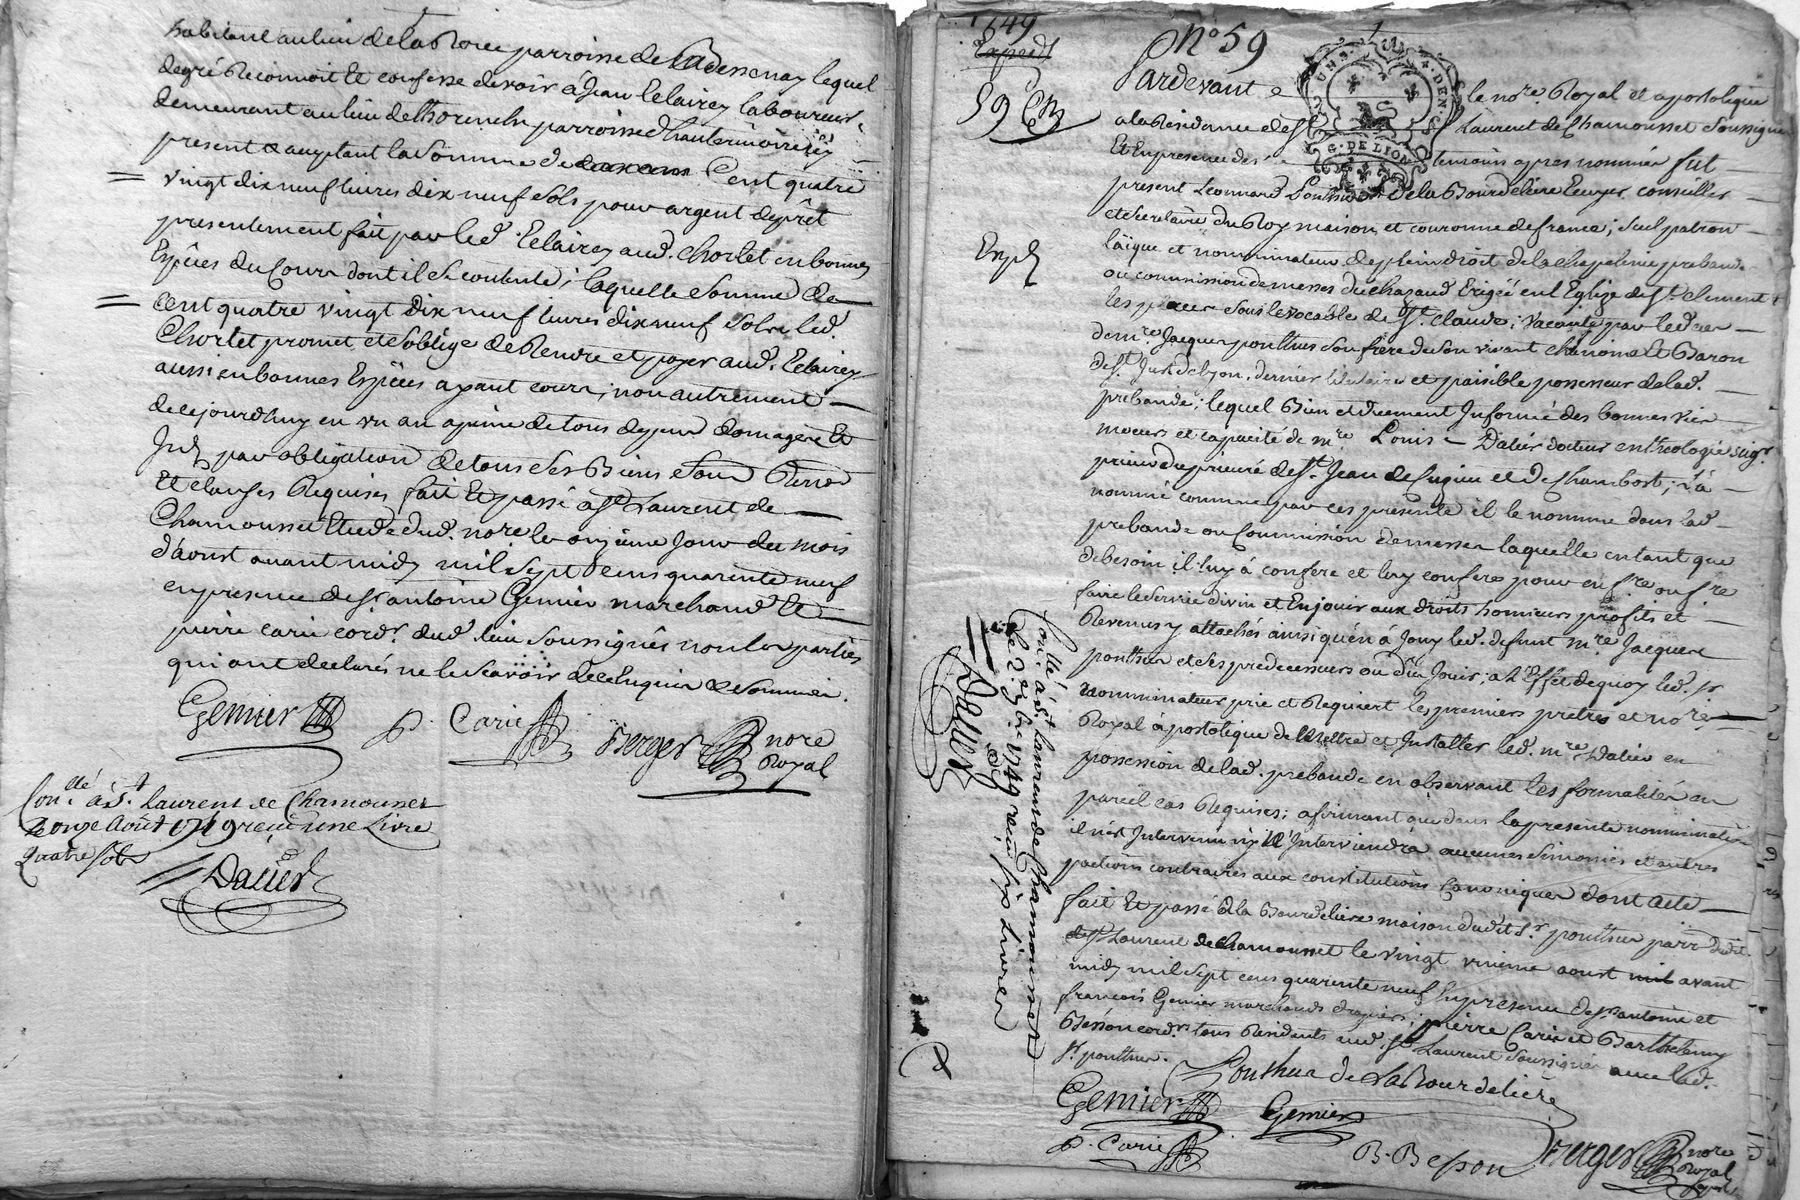 habitant au lieu de la parroisse de lequel
degré Reconnoit Et confesse devoir à Jean laboureur
demeurant au lieu de parroisse
present & acceptant la Somme de Cent quatre
vingt dix neuf livres dix neuf Sols pour argent de prêt
presentement fait par led. aud. Chorlet en bonnes
Espêces du Cours dont il Se contente; laquelle Somme de
cent quatre vingt Dix neuf livres dix neuf Sols led.
Chorlet promet et S'oblige de Rendre et payer aud.
aussi en bonnes Espêces ayant cours, non autrement
de ce jourd'huy en un an a peine de tous depens domages Et
par obligation de tous Ses Biens Sous
Et clauses Requises fait Et passé a St Laurent de
Chamousset Etude dud. nore le onzieme Jour du mois
d'aoust avant midy mil Sept Cens quarente neuf
en presence de Sr antoine Gemier marchand Et
pierre carie cordr dud. lieu Soussignês non les parties
qui ont declarés ne le Scavoir de ce Enquis & Sommês.
Gemier P. Carie Berger nore
Royal
Conllé à St Laurent de Chamousset
Le onze Août 1749 reçu une Livre
quatre Sols
Dalier
1749
Expedt
59 Em
Expt
No 59
Pardevant le nore Royal et apostolique
a la Residance de St Laurent de Chamousset Soussigné
Et En presence des temoins apres nommês fut
present Leonnard Ponthus de la Bourdelière Ecuyer conseiller
et Secretaire du Roy maison et couronne de france, Seul patron
laïque et nominateur de plein droit de la Chapelenie prebande
ou commission de messes du chazaud Erigée en l'Eglize de St clement
les places Sous le vocable de St. claude; vacante par le decès
de mre Jacques ponthus Son frere de Son vivant chânoine Et Baron
de St Just de Lyon, dernier titulaire et paisible possesseur de lad.
prebande; lequel Bien et düement Informé des bonnes vies
moeurs et capacité de mre Louis Dalier docteur en theologie Seigr
prieur du prieuré de St Jean de et de Chambost; l'a
nommé comme par ces presente il le nomme dans lad
prebande ou Commission de messes laquelle en tant que
de besoin il luy à confere et luy confere pour en fre ou fre
faire le Service divin et En jouir aux droits honneurs profits et
Revenus y attachés ainsi qu'en à Jouy led. defunt mre Jacques
ponthus et Ses predecesseurs ou dû Jouir; a l'Effet de quoy led. Sr
nominateur prie et Requiert les premiers prêtres et nore
Royal apostolique de Mettre et Installer led. mre Dalier en
possession de lad. prebande en observant les formalités en
pareil cas Requises; afirmant que dans la presente nomination
il n'est Intervenu ny Il Interviendra aucunes Simonies et autres
pactions contraires aux constitutions Canoniques Dont acte
fait Et passé a la Bourdeliere maison dudit Sr ponthus parr dudit
St Laurent de Chamousset le vingt unieme aoust avant
midy mil Sept cens quarente neuf En presence de Srs antoine et
françois Gemier marchands drapiers, pierre Carie et Barthelemy
Besson cordrs tous Residents aud. St Laurent Soussignés avec led.
Sr ponthus.
Ponthus de LaBourdelière
Gemier Gemier
P. Carie B. Besson Berger nore
Royal
Conllé à St Laurent de Chamousset
le 1749 reçu six Livres
Dalier
UNS. DEN.
G. DE LION